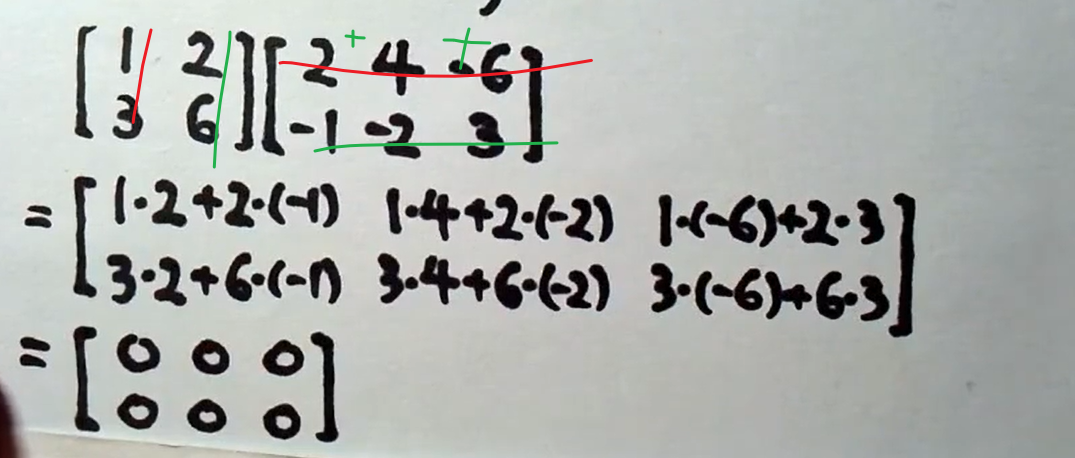 [1 2 3 6] [2 + 4 + -6 -1 -2 3]
= [1·2+2·(-1) 1·4+2·(-2) 1·(-6)+2·3
3·2+6·(-1) 3·4+6·(-2) 3·(-6)+6·3]
= [0 0 0
0 0 0]